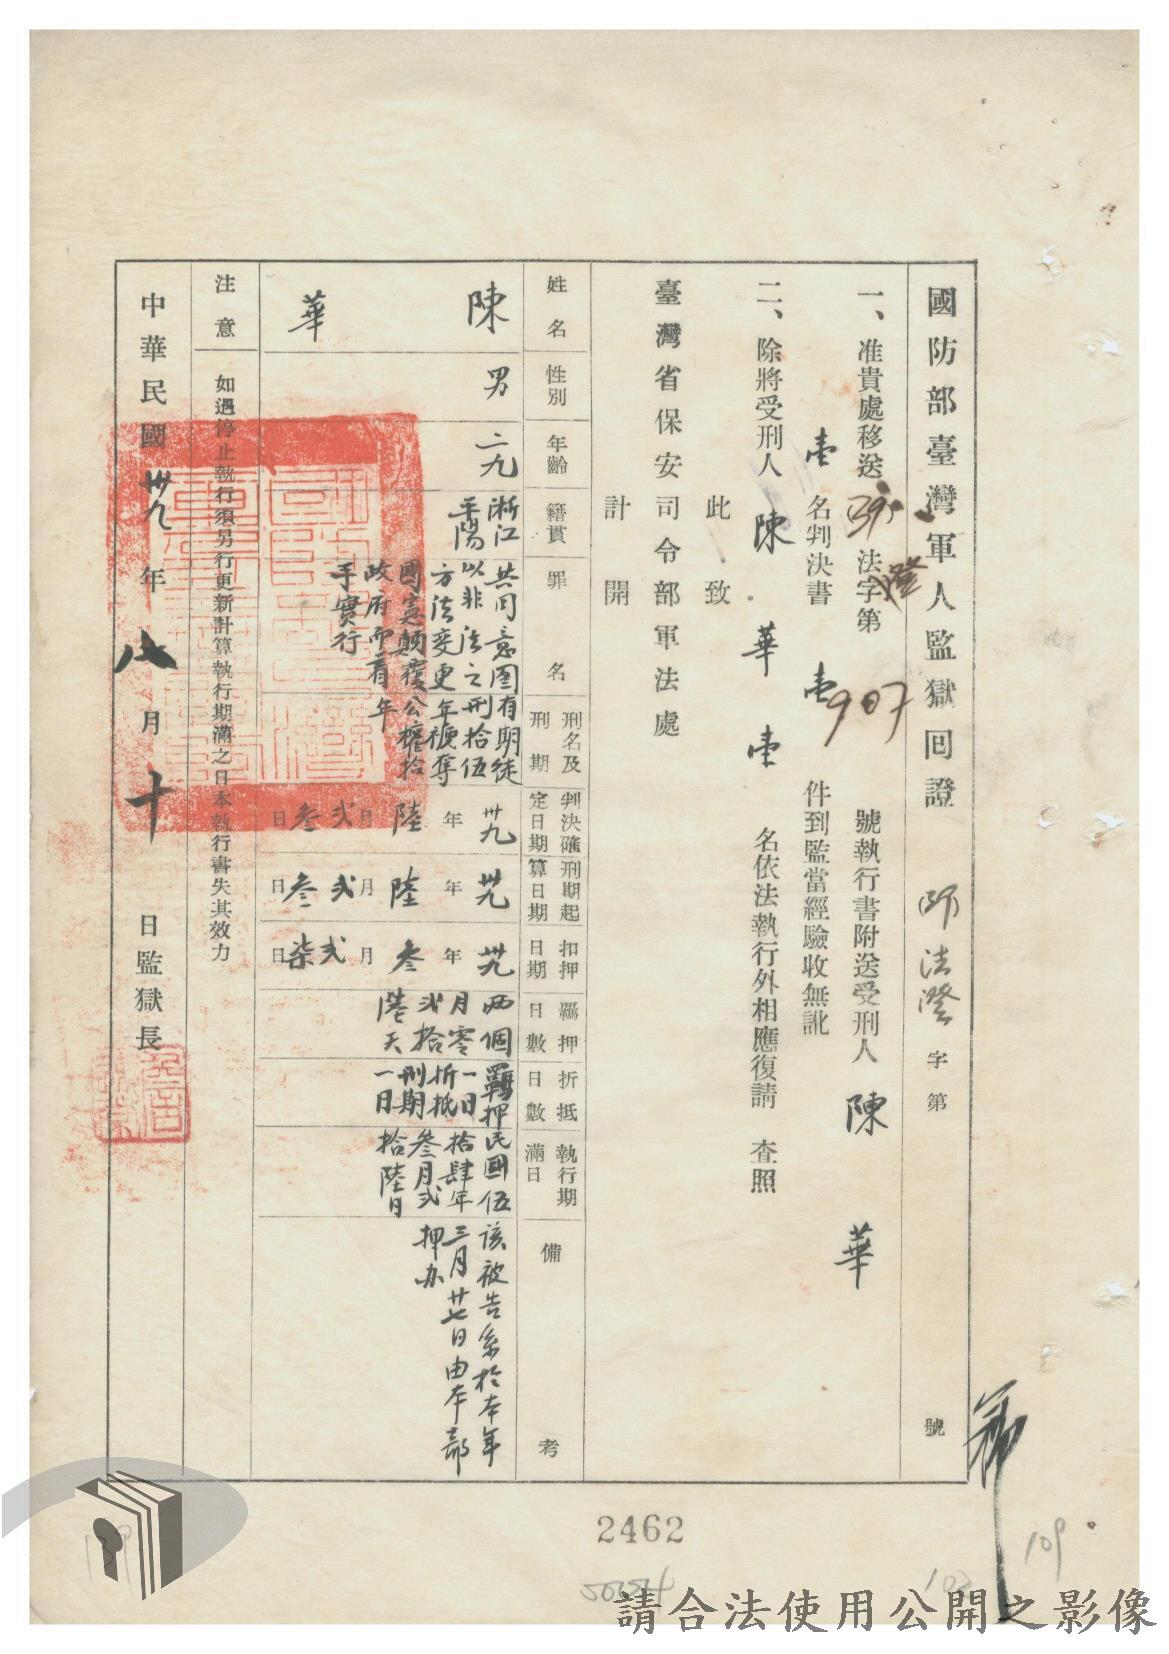 國防部臺灣軍人監獄回證 法澄 字第 號
一、准貴處移送(39)法字第澄907號執行書附送受刑人陳華
壹名判決書壹件到監當經驗收無訛
二、除將受刑人陳華壹名依法執行外相應復請 查照
此致
臺灣省保安司令部軍法處
計開
姓名
陳華
性別
男
年齡
二九
籍貫
浙江
平陽
罪名
共同意圖
以非法之
方法變更
國憲顛覆
政府而着
手實行
刑名及刑期
有期徒
刑拾伍
年褫奪
公權拾
年
判決確定日期
卅九年陸月弍叁日
刑期起算日期
卅九年陸月弍叁日
扣押日期
卅九年叁月弍柒日
羈押日數
兩個
月零
弍拾
陸天
折抵日數
羈押
一日
折抵
刑期
一日
執行期滿日
民國伍
拾肆年
叁月弍
拾陸日
備考
該被告系於本年
三月廿七日由本部
押办
注意
如遇停止執行須另行更新計算執行期滿之日本執行書失其效力
中華民國卅九年八月十日監獄長
2462
109
請合法使用公開之影像